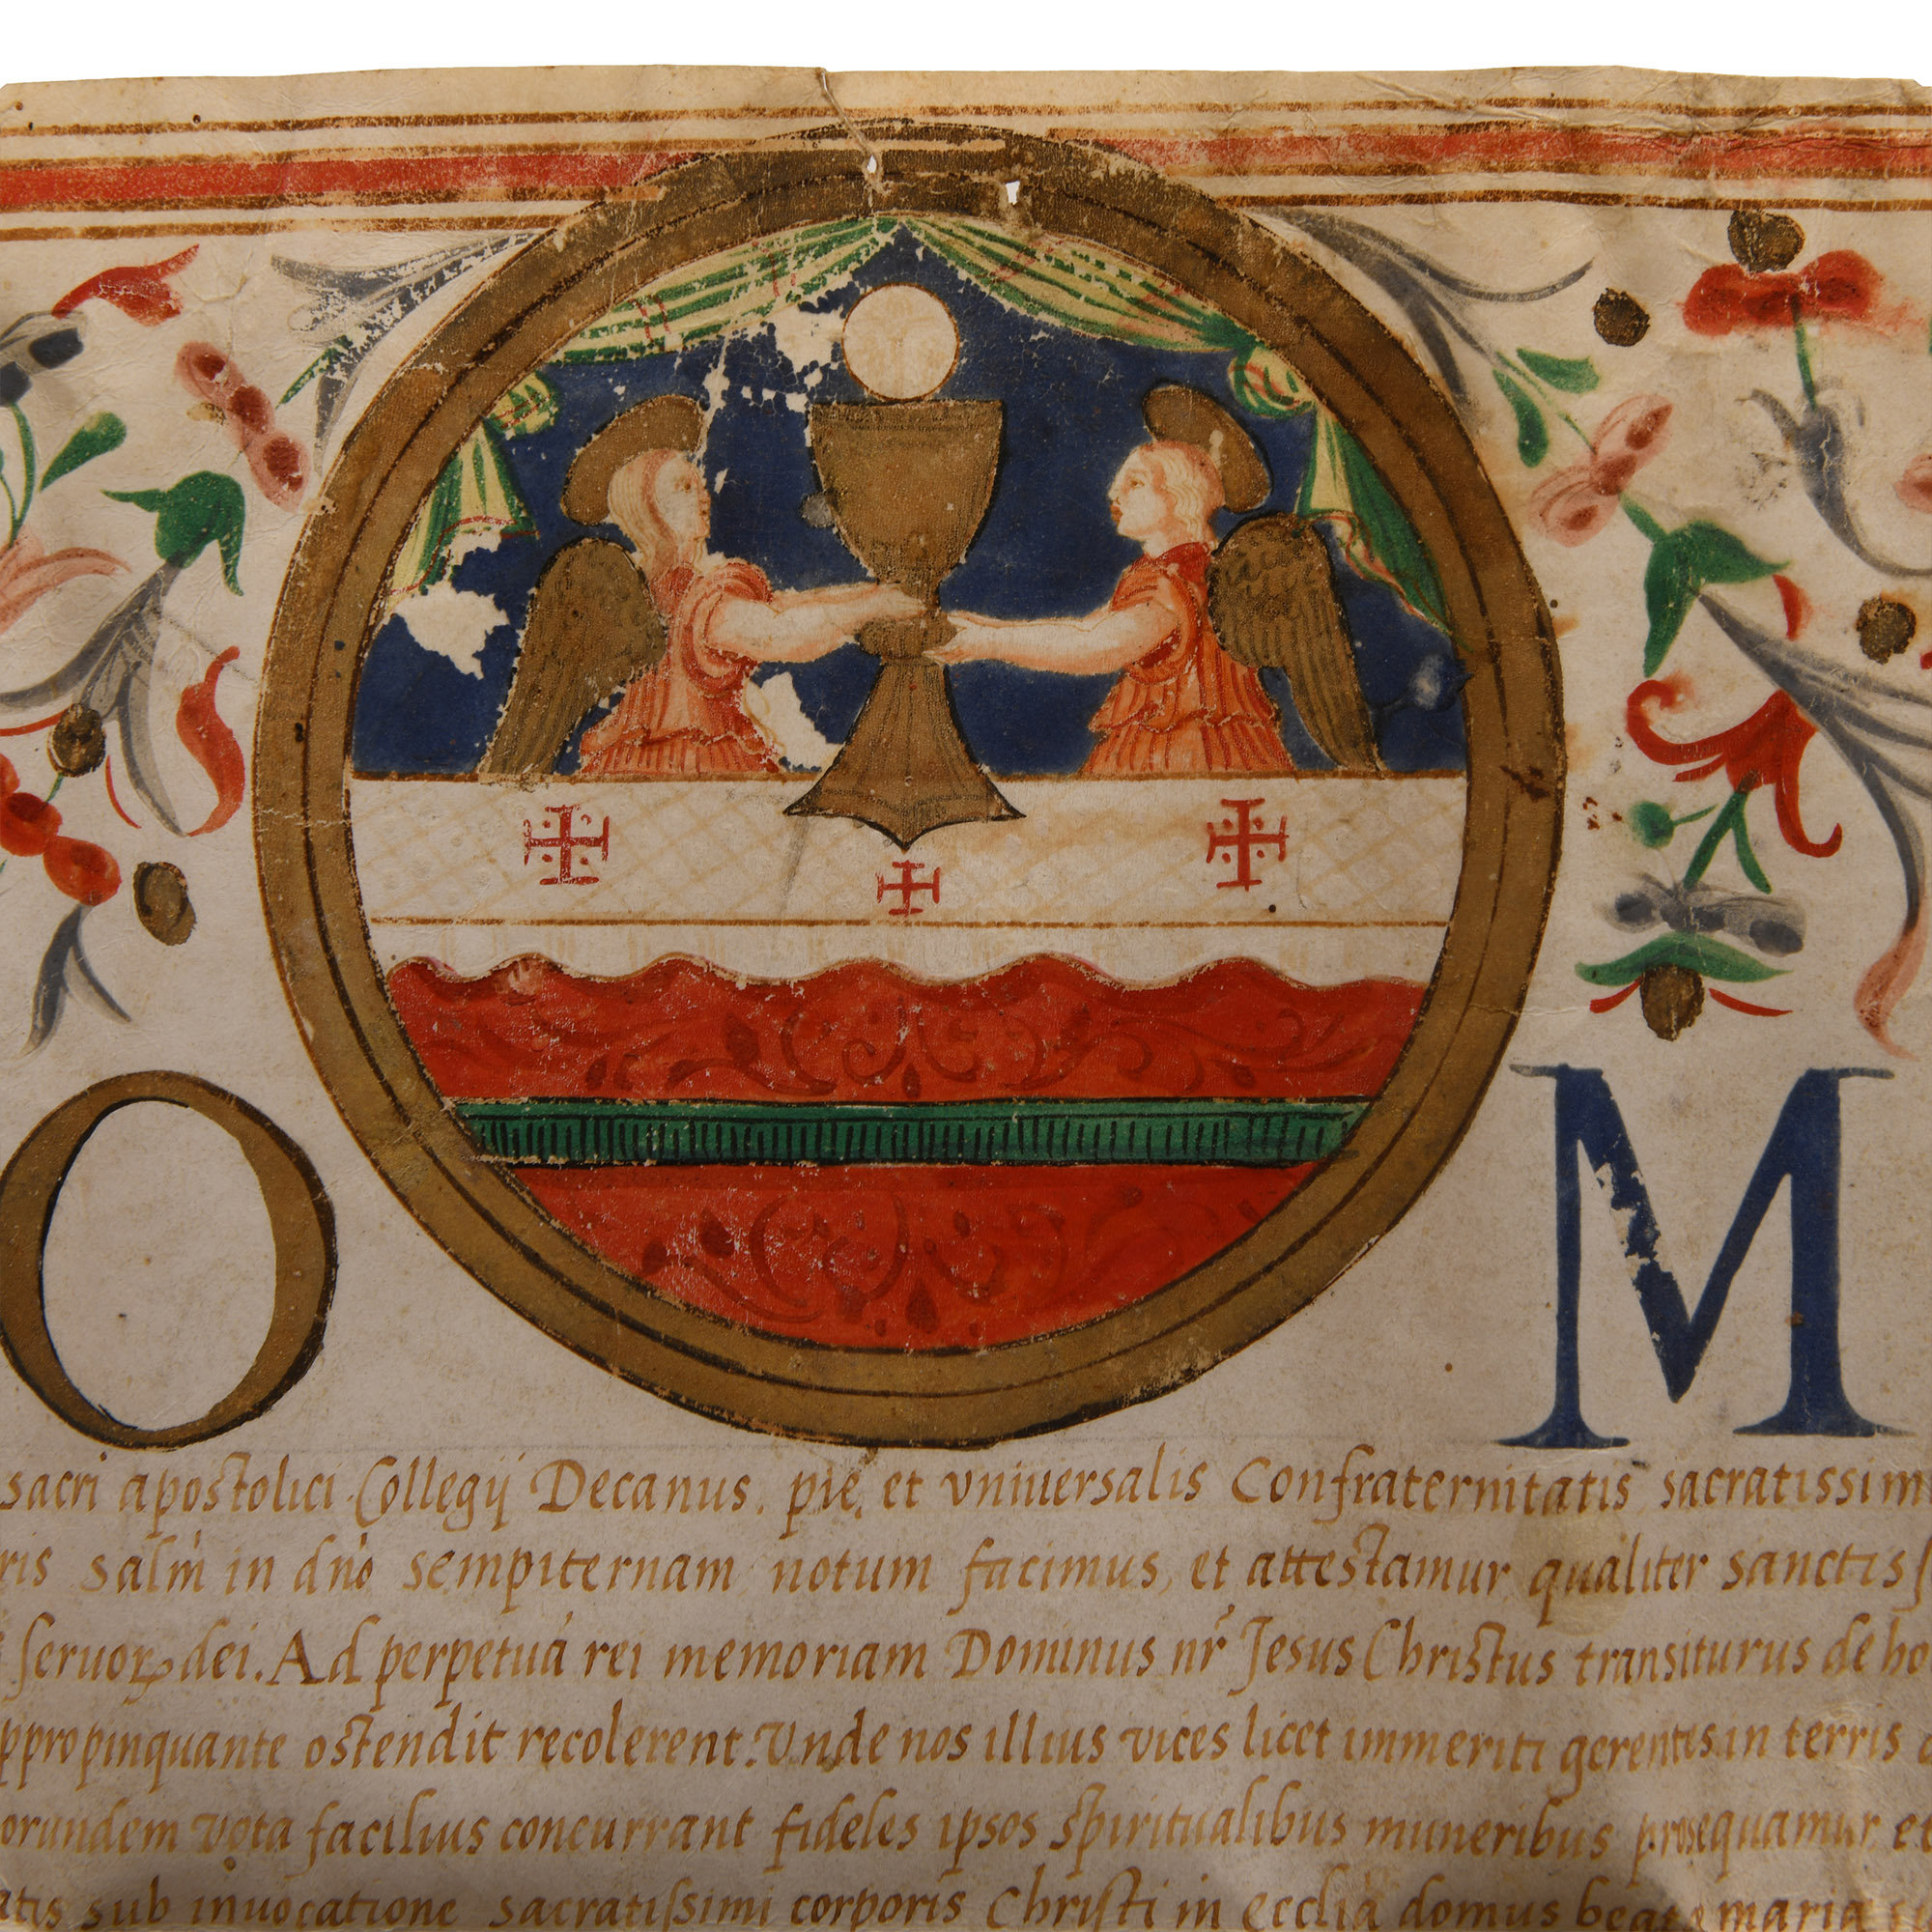 O M
sacri apostolici Collegij Decanus. pie, et vniuersalis Confraternitatis sacratissim
ris salm̃ in dño sempiternam notum facimus, et attestamur qualiter sanctiss
seruoꝝ dei. Ad perpetuá rei memoriam Dominus nr̃ Jesus Christus transiturus de ho
ppropinquante ostendit recolerent. Vnde nos illius vices licet immeriti gerentes in terris
orundem vota facilius concurrant fideles ipsos spiritualibus muneribus prosequamur et
atis sub inuocatione sacratissimi corporis Christi in ecclia domus beate maria